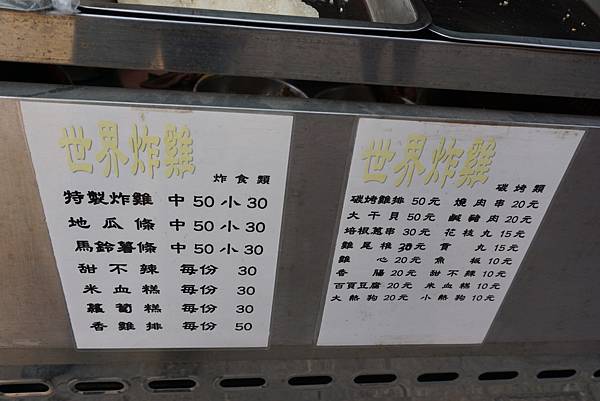 世界炸雞
炸食類
特製炸雞 中50小30
地瓜條 中50小30
馬鈴薯條 中50小30
甜不辣 每份 30
米血糕 每份 30
蘿蔔糕 每份 30
香雞排 每份 50
世界炸雞
碳烤類
碳烤雞排 50元 燒肉串 20元
大干貝 50元 鹹豬肉 20元
培根蔥串 30元 花枝丸 15元
雞尾椎 30元 貢丸 15元
雞心 20元 魚板 10元
香腸 20元 甜不辣 10元
百頁豆腐 20元 米血糕 10元
大熱狗 20元 小熱狗 10元